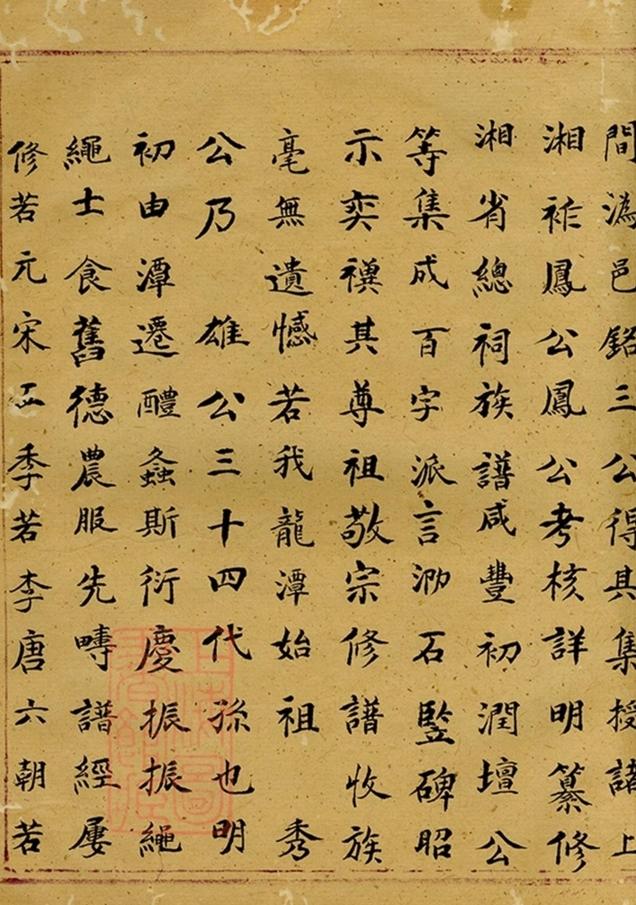 間溈邑銘三公得其集授諸上
湘祚鳳公鳳公考核詳明纂修
湘省總祠族譜咸豐初潤壇公
等集成百字派言泐石豎碑昭
示奕禩其尊祖敬宗修譜收族
毫無遺憾若我龍潭始祖秀
公乃雄公三十四代孫也明
初由潭遷醴螽斯衍慶振振繩
繩士食舊德農服先疇譜經屢
修若元宋五季若李唐六朝若